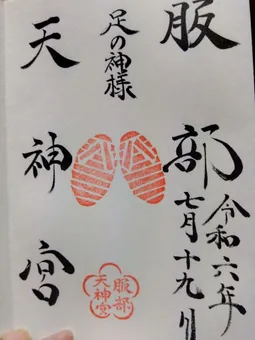 服部
足の神様
天神宮
令和六年
七月十九日
服部
天神宮